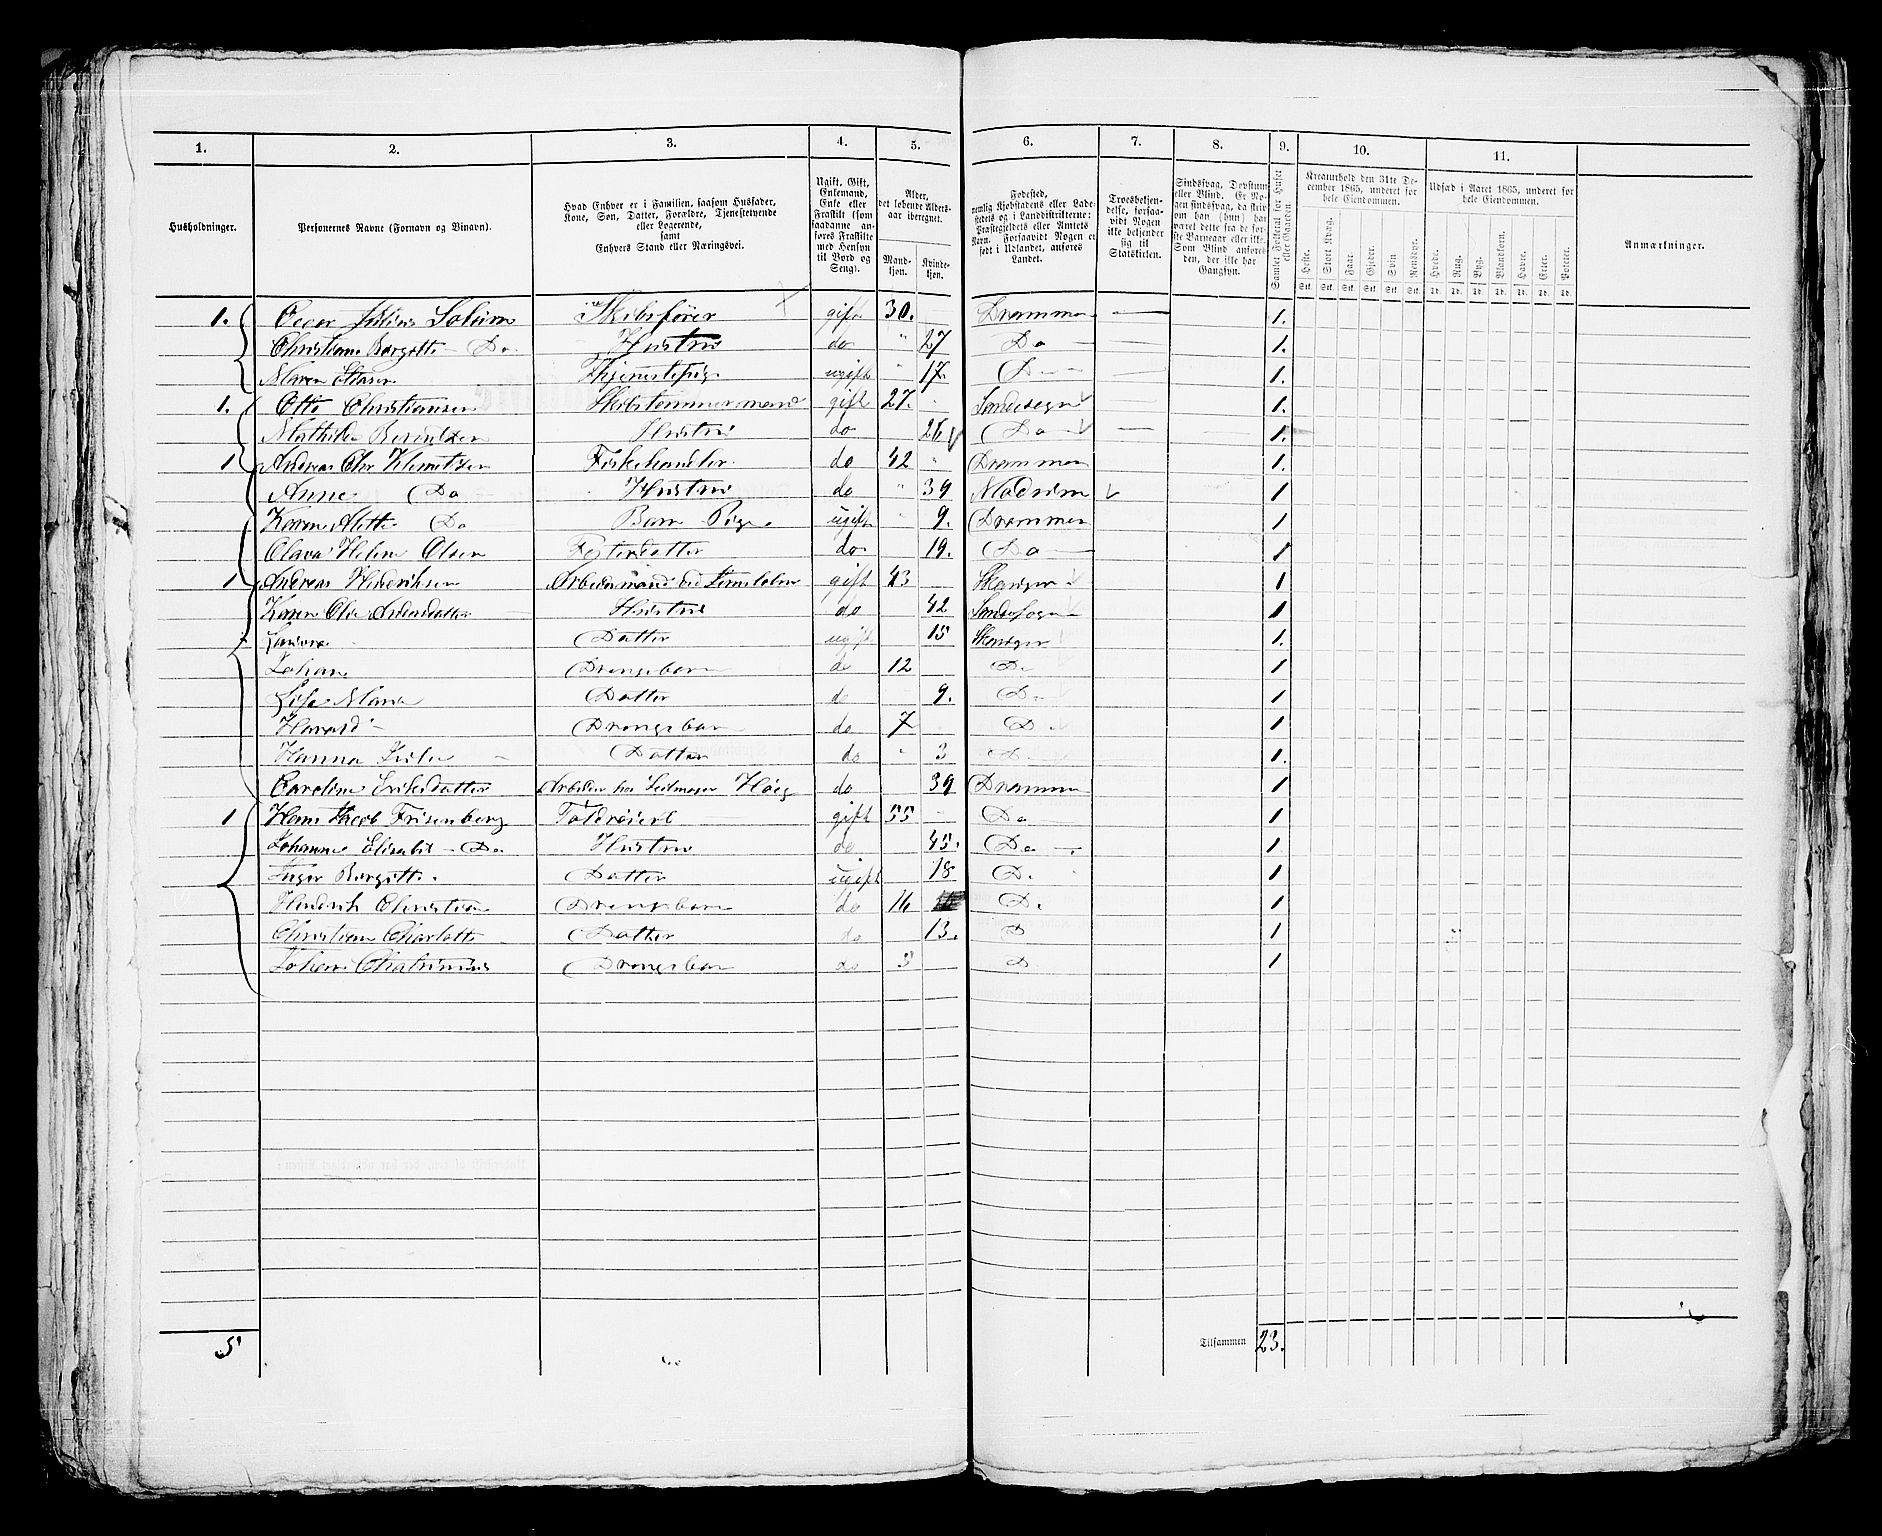 1. 2. 3. 4. 5. 6. 7. 8. 9. 10. 11.
Husholdninger.
Personernes Navne (Fornavn og Tilnavn).
Hvad Enhver er i Familien, saasom Husfader, Kone, Søn, Datter, Forældre, Tjenestetyende eller Logerende, samt Enhvers Stand eller Næringsvei.
Ugift, Gift, Enkemand, Enke eller Fraskilt (som saadanne anføres Fraskilte med Hensyn til Bord og Seng).
Alder, det løbende Alders-aar iberegnet.
Mandkjøn. Kvindekjøn.
Fødested, nemlig Kjøbstadens eller Ladestedets og i Landdistrikterne: Præstegjeldets eller Amtets Navn. Forsaavidt Nogen er født i Udlandet, anføres Landet.
Troesbekjendelse, forsaavidt Nogen ikke bekjender sig til Statskirken.
Sindssvag, Døvstum eller Blind. Er Nogen sindssvag, da skrives om han (hun) har været dette fra de første Barneaar eller ikke. Som Blind anføres den, der ikke har Gangsyn.
Samlet Folketal for Huset eller Gaarden.
Kreaturhold den 31te December 1865, underet for hele Eiendommen.
Heste. Stort Kvæg. Faar. Gjeder. Svin. Rensdyr.
Udsæd i Aaret 1865, underet for hele Eiendommen.
Hvede. Rug. Byg. Blandkorn. Havre. Erter. Poteter.
Stk. Stk. Stk. Stk. Stk. Stk. Td. Td. Td. Td. Td. Td. Td.
Anmærkninger.
1. Julius Solum Skibsfører gift 30. Drammen — 1.
Christiane Borgitte — Do Hustru do " 27 Do — 1.
Maren Tjenestepige ugift " 17. D — 1.
1. Otto Christiansen Skibstømmermand gift 27. Sandesogn 1.
Mathilde Berntsen Hustru do 26 Do 1.
1 Andreas Chr Klemetsen Fiskehandler do 42 " Drammen 1.
Anne Do Hustru do " 39 Modum 1
Karen Do Barn Pige ugift " 9. Drammen 1
Olava Helene Olsen Fosterdatter do 19. Do 1
1 Andreas Hendriksen Arbeidsmand ved gift 43 Skouger 1
Karen Hustru do 42 Sandesogn 1
Datter ugift 15 Skouger 1.
Johan Drengebarn do 12 Do 1
Maria Datter do 9. Do 1
Harald Drengebarn do 7 D 1
Hanna Datter do " 3 D 1.
Caroline Eriksdatter Arbeider hos Seilmager Høeg do 39 Drammen 1
1 Hans Jacob Frisenberg Toldrorer gift 55 Do 1
Johanne Elisabet — Do Hustru do 45. Do 1
Inger Borgitte Datter ugift 18 D. 1
Hendrik Christian Drengebarn do 14 D. 1
Christiane Charlotte Datter do 13. D 1
Johan Drengebarn do 5 D 1
5 Tilsammen 23.